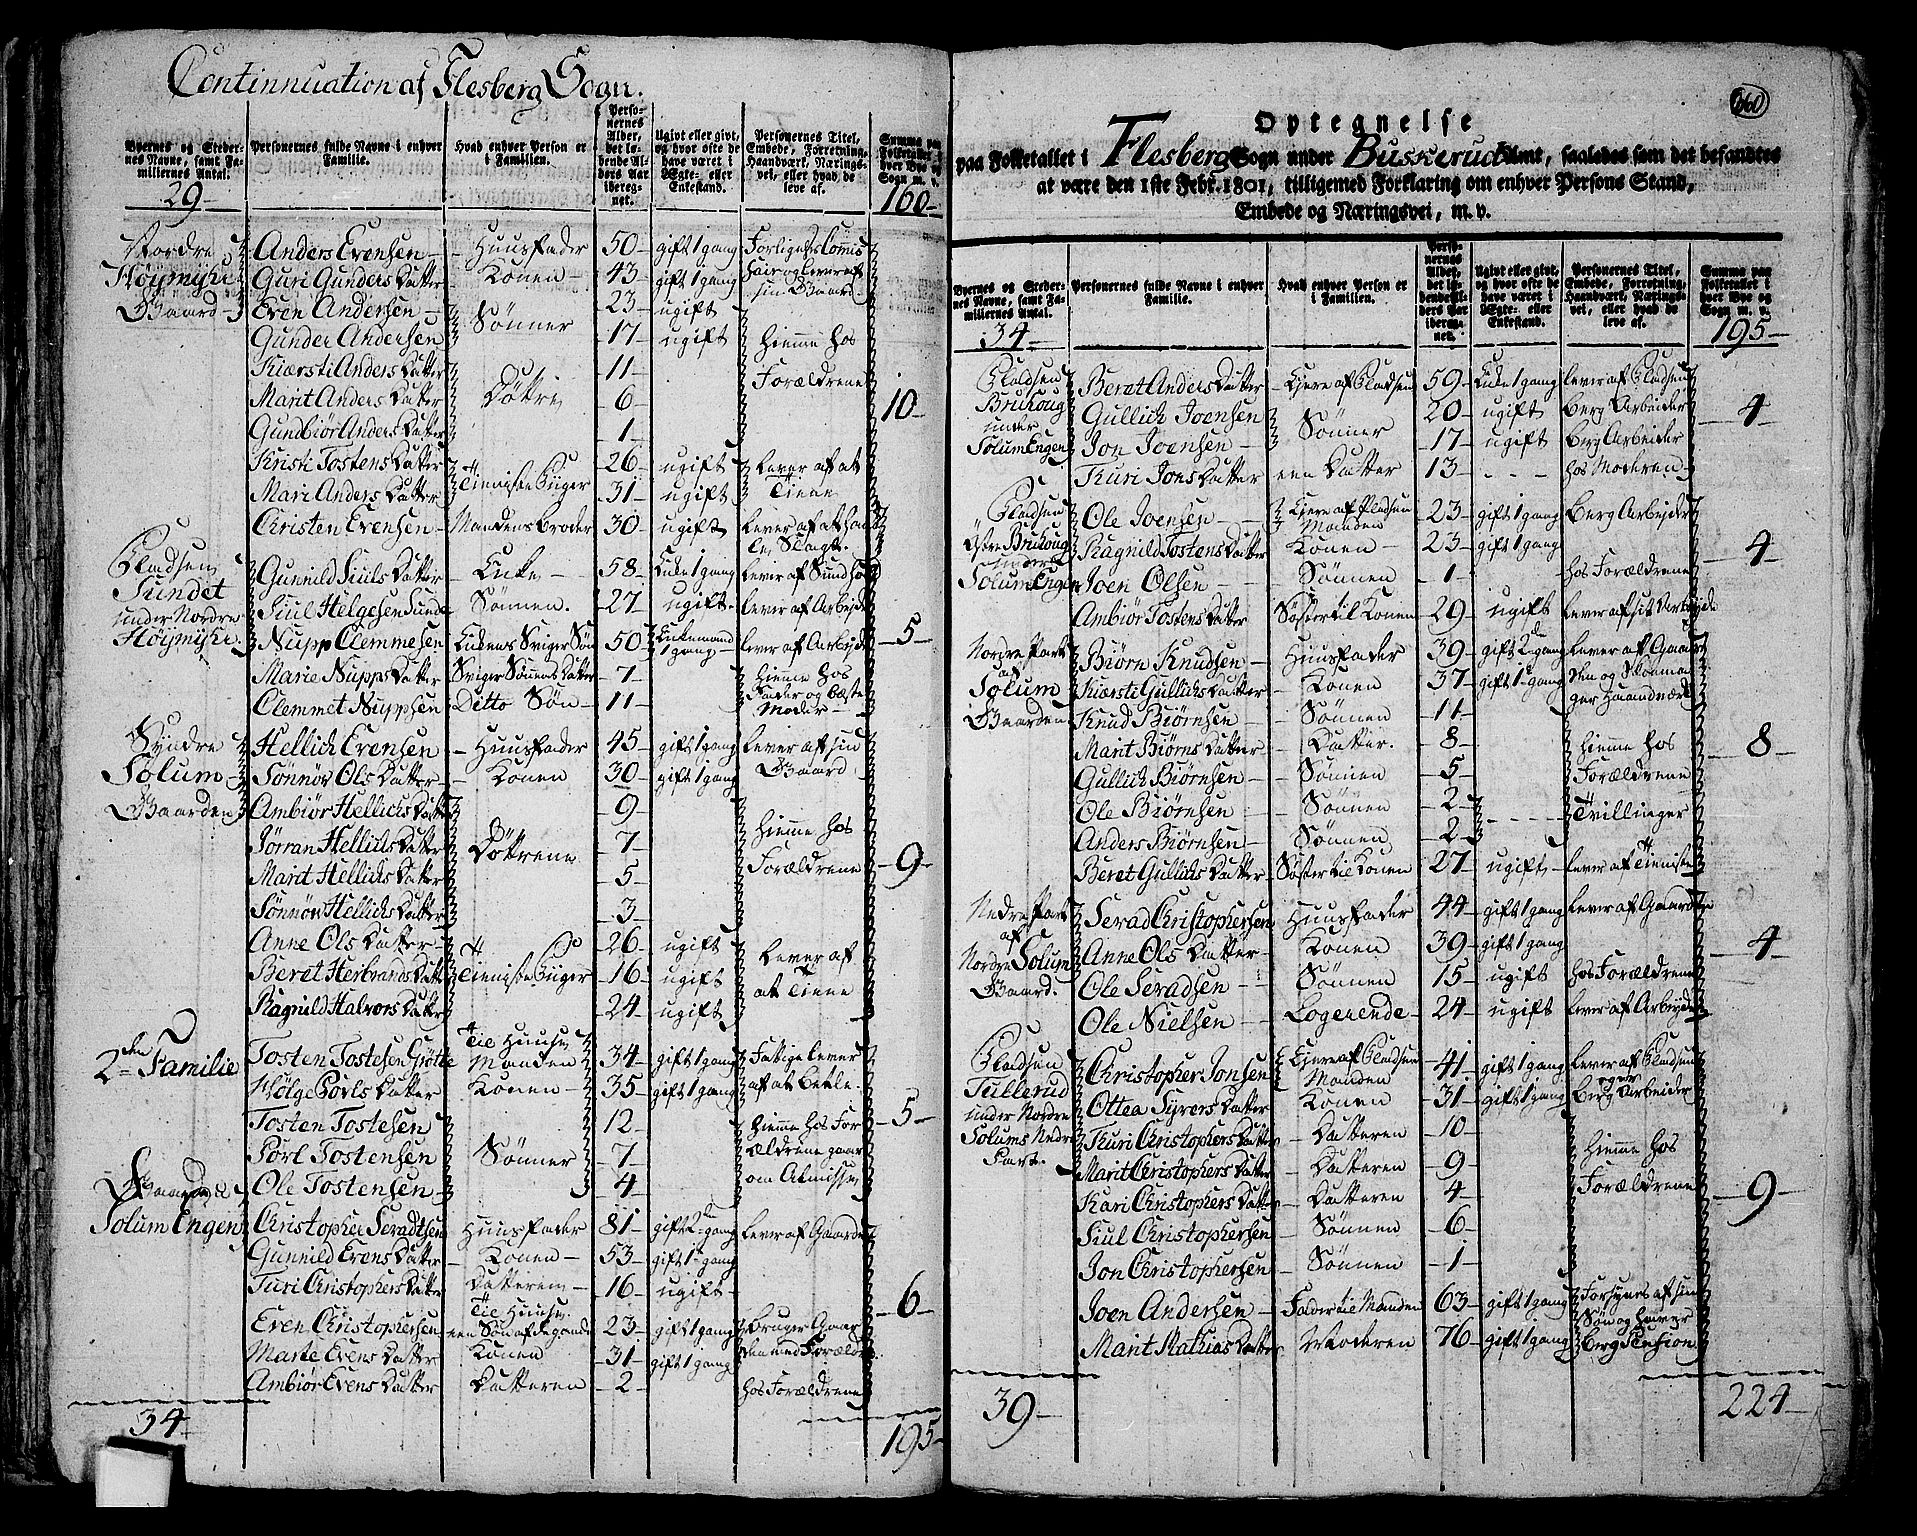 Continnuation af Flesberg Sogn.
Byernes og Stedernes Navne, samt Familiernes Antal. | Personernes fulde Navne i enhver Familie. | Hvad enhver Person er i Familien. | Personernes Alder, det løbende Alders Aar iberegnet. | Ugivt eller givt, og hvor ofte de have været i Ægte- eller Enkestand. | Personernes Titel, Embede, Forretning, Haandværk, Næringsvei, eller hvad de leve af. | Summa paa Folketallet i hver Bye og Sogn m. v.
29 | 160
Nordre | Anders Evensen | Huusfader | 50 | gift 1 gang | Forligelses Comis
Höymyhr | Guri Gunders Datter | Konen | 43 | gift 1 gang | sair og lever af
Gaard | Even Andersen | Sønner | 23 | ugift | sin Gaard
Gunder Andersen | 17 | ugift | hiemme hos
Kiersti Anders Datter | 11 | Forældrene
Marit Anders Datter | Døtre | 6 | 10
Gundbiør Anders Datter | 1
Kristi Tostens Datter | Tieniste Piiger | 26 | ugift | Lever af at
Mari Anders Datter | 31 | ugift | Tiene
Christen Evensen | Mandens broder | 30 | ugift
Pladsen | Gunnild Siuls Datter | Enke | 58 | Enke 1 gang
Sundet | Siul Helgesen Sunde | Sønnen. | 27 | ugift. | lever af Arbeyde
under Nordre | Nupp Clemmesen | Enkens Sviger Søn | 50 | Enkemand 1 gang | lever af Arbeyde | 5
Höymyhr. | Marie Nupps Datter | Sviger Sønens Datter | 7 | hiemme hos
Clemmet Nuppsen | Ditto Søn | 11 | Fader og Beste Moder
Syndre | Hellich Evensen | Huusfader | 45 | gift 1 gang | lever af sin
Solum | Sønnøv Ols Datter | Konen | 30 | gift 1 gang | Gaard
Gaarden | Ambiør Hellichs Datter | Døttrene | 9
Jørran Hellichs Datter | 7 | hiemme hos
Marit Hellichs Datter | 5 | Forældrene | 9
Sønnøv Hellichs Datter | 3
Anne Ols Datter | Tieniste Piiger | 26 | ugift | Lever af
Beret Herbrands Datter | 16 | ugift | at Tiene
Ragnild Halvors Datter | 24 | ugift
2den Familie | Tosten Tostesen Grötte | Til Huuse Manden | 34 | gift 1 gang | Fattige lever
Hölge Povls Datter | Konen | 35 | gift 1 gang | af at betle.
Tosten Tostesen | Sønner | 12 | hiemme hos For | 5
Porl Tostensen | 7 | ældrene gaar
Ole Tostensen | 4 | om Almisse
Gaarden | Christopher Seradtsen | Huusfader | 81 | gift 2 gang | lever af Gaarden
Solum Engen | Gunnild Evens Datter | Konen | 53 | gift 1 gang
Turi Christophers Datter | Datteren | 16 | ugift | 6
Even Christophersen | Til Huuse een Søn af | 23 | gift 1 gang | bruger Gaar
Marte Evens Datter | Konen | 31 | gift 1 gang | den med Forældr.
Ambiør Evens Datter | Datteren | 2 | hos Forældrene
34 | 195
160
Optegnelse
paa Folketallet i Flesberg Sogn under Buskerud Amt, saaledes som det befandtes
at være den 1ste Febr. 1801, tilligemed Forklaring om enhver Persons Stand,
Embede og Næringsvei, m. v.
Byernes og Stedernes Navne, samt Familiernes Antal. | Personernes fulde Navne i enhver Familie. | Hvad enhver Person er i Familien. | Personernes Alder, det løbende Alders Aar iberegnet. | Ugivt eller givt, og hvor ofte de have været i Ægte- eller Enkestand. | Personernes Titel, Embede, Forretning, Haandværk, Næringsvei, eller hvad de leve af. | Summa paa Folketallet i hver Bye og Sogn m. v.
34 | 195
Pladsen | Beret Anders Datter | Ejere af Pladsen | 59 | Enke 1 gang | lever af Pladsen
Bruhoug | Gullich Joensen | Sønner | 20 | ugift | Berg Arbeider | 4
under | Jon Joensen | 17 | ugift | Berg Arbeider
Solum Engen | Turi Jons Datter | een Datter | 13 | hos Moderen
Pladsen | Ole Joensen | Ejere af Pladsen Manden | 23 | gift 1 gang | Berg Arbeyder
Østre Bruhoug | Ragnild Tostens Datter | Konen | 23 | gift 1 gang | 4
under Solum Engen | Joen Olsen | Sønnen | 1 | hos Forældrene
Ambiør Tostens Datter | Søster til Konen | 29 | ugift | lever af sit Arbeyde
Nordre Part | Biørn Knudsen | Huusfader | 39 | gift 2 gang | lever af Gaar
af | Kiersti Gullichs Datter | Konen | 37 | gift 1 gang | den og Sloma
Solum | Knud Biørnsen | Sønnen | 11 | ger Haandværk
Gaarden | Marit Biørns Datter | Datter. | 8 | hiemme hos | 8
Gullich Biørnsen | Sønnen | 5 | Forældrene
Ole Biørnsen | Sønnen | 2 | Tvillinger
Anders Biørnsen | Sønnen | 2
Beret Gullichs Datter | Søster til Konen | 27 | ugift | lever af Tieniste
Nedre Part | Serad Christophersen | Huusfader | 44 | gift 1 gang | lever af Gaarden
af | Anne Ols Datter | Konen | 39 | gift 1 gang | 4
Nordre Solum | Ole Seradsen | Sønnen | 15 | ugift | hos Forældrene
Gaard. | Ole Nielsen | Logerende | 24 | ugift | lever af Arbeyde
Pladsen | Christopher Jonsen | Ejere af Pladsen Manden | 41 | gift 1 gang | lever af Pladsen
Tullerud | Ottea Syvers Datter | Konen | 31 | gift 1 gang | og er Berg Arbeider
under Nordre | Turi Christophers Datter | Datteren | 10
Solums Nedre | Marit Christophers Datter | Datteren | 9 | hiemme hos
Part. | Kari Christophers Datter | Datteren | 4 | Forældrene | 9
Siul Christophersen | Sønnen | 6
Jon Christophersen | Sønnen | 1
Joen Andersen | Fader til Manden | 63 | gift 1 gang | Forsynes af sin
Marit Mathias Datter | Moderen | 76 | gift 1 gang | Søn og haver Berg Pension
39 | 224